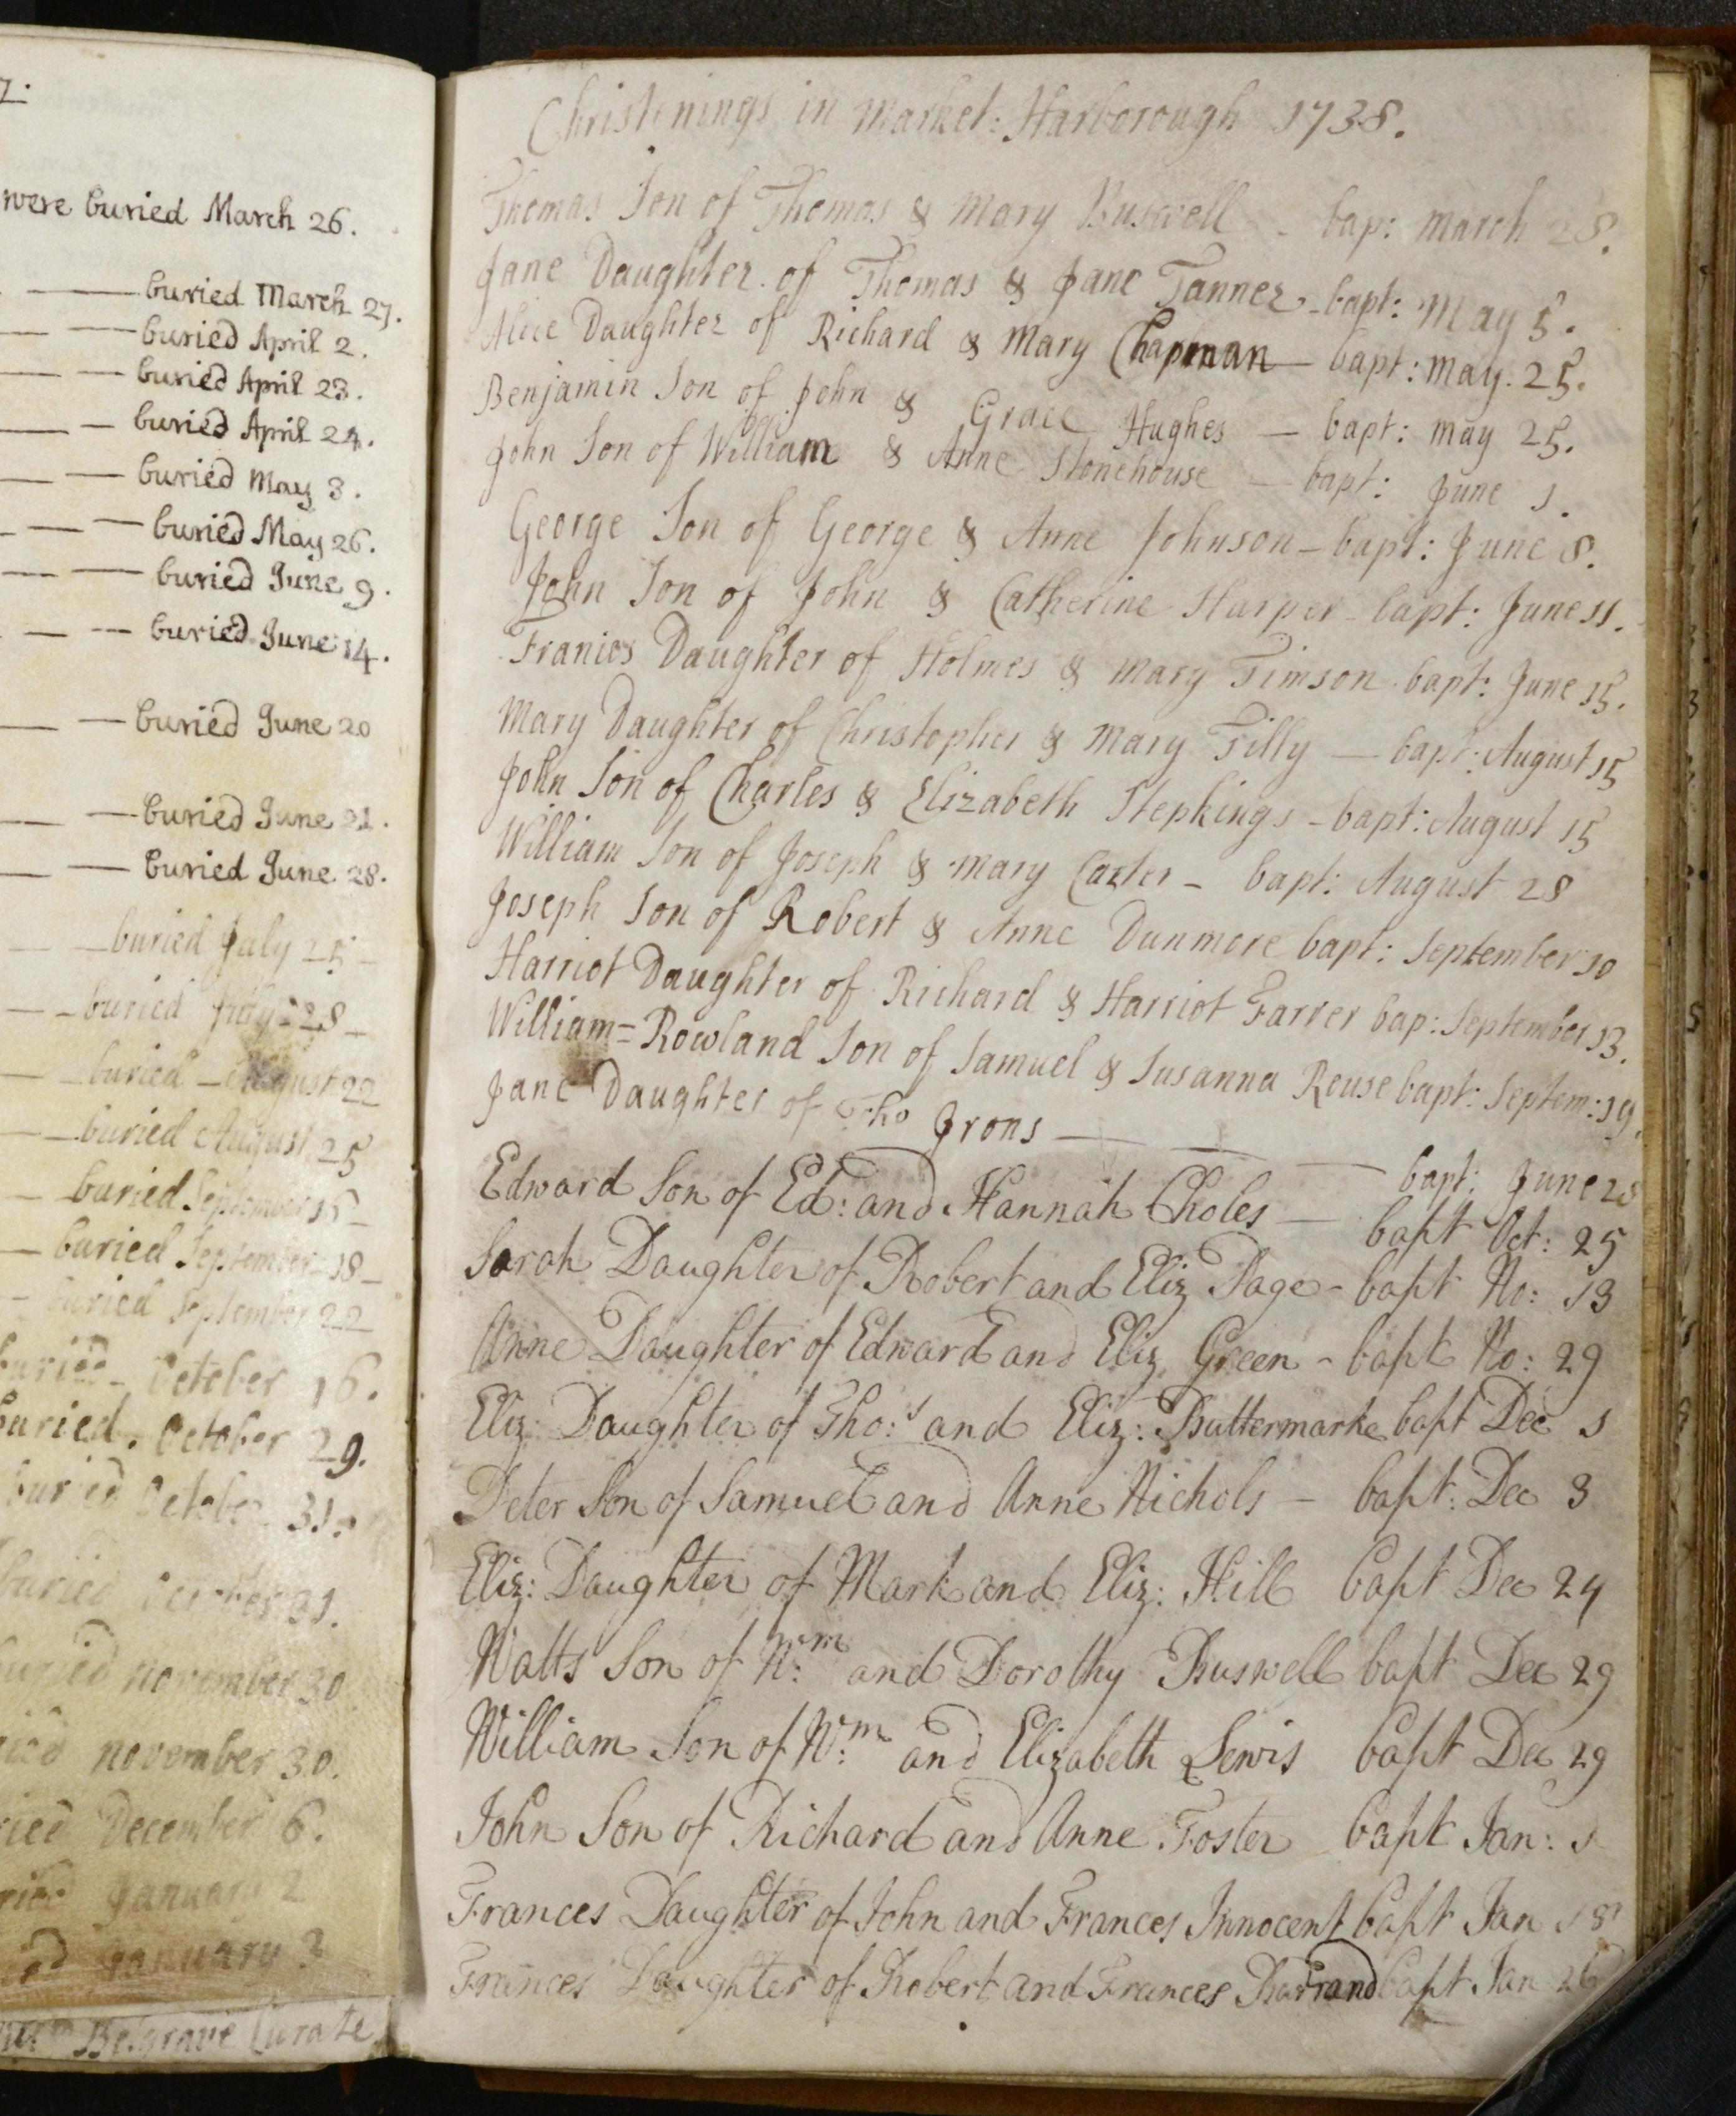 7.
were buried March 26.
buried March 27.
buried April 2.
buried April 23.
buried April 24.
buried May 3.
buried May 26.
buried June 9.
buried June 14.
buried June 20
buried June 21.
buried June 28.
buried July 25
buried July 28
buried August 22
buried August 25
buried September 15
buried September 18
buried September 22
buried October 16.
buried October 29.
buried October 31.
buried October 31.
buried November 30
ied November 30.
ried December 6.
ried January 2
ied January 3
Belgrave Curate
Christenings in Market: Harborough 1738.
Thomas Son of Thomas & Mary Buswell - bap: March 28.
Jane Daughter of Thomas & Jane Tanner - bapt: May 5.
Alice Daughter of Richard & Mary Chapman - bapt: May. 25.
Benjamin Son of John & Grace Hughes - bapt: May 25.
John Son of William & Anne Stonehouse - bapt: June 1.
George Son of George & Anne Johnson - bapt: June 8.
John Son of John & Catherine Harper - bapt: June 11.
Franics Daughter of Holmes & Mary Timson bapt: June 15.
Mary Daughter of Christopher & Mary Tilly - bapt: August 15
John Son of Charles & Elizabeth Stephings - bapt: August 15
William Son of Joseph & Mary Carter - bapt: August 28
Joseph Son of Robert & Anne Dunmore bapt: September 10
Harriot Daughter of Richard & Harriot Farrer bap: September 13.
William=Rowland Son of Samuel & Susanna Reuse bapt: Septem: 19.
Jane Daughter of Tho Jrons - bapt: June 28
Edward Son of Ed: and Hannah Choles - bapt Oct: 25
Sarah Daughter of Robert and Eliz Page - bapt No: 13
Anne Daughter of Edward and Eliz Green - bapt No: 29
Eliz: Daughter of Tho:s and Eliz: Buttermarke bapt Dec 1
Peter Son of Samuel and Anne Nichols - bapt: Dec 3
Eliz: Daughter of Mark and Eliz: Hill bapt Dec 24
Watts Son of W:m and Dorothy Buswell bapt Dec 29
William Son of W:m and Elizabeth Lewis bapt Dec 29
John Son of Richard and Anne Foster bapt Jan: 1
Frances Daughter of John and Frances Innocent bapt Jan 18
Frances Daughter of Robert and Frances Barrand bapt Jan 26